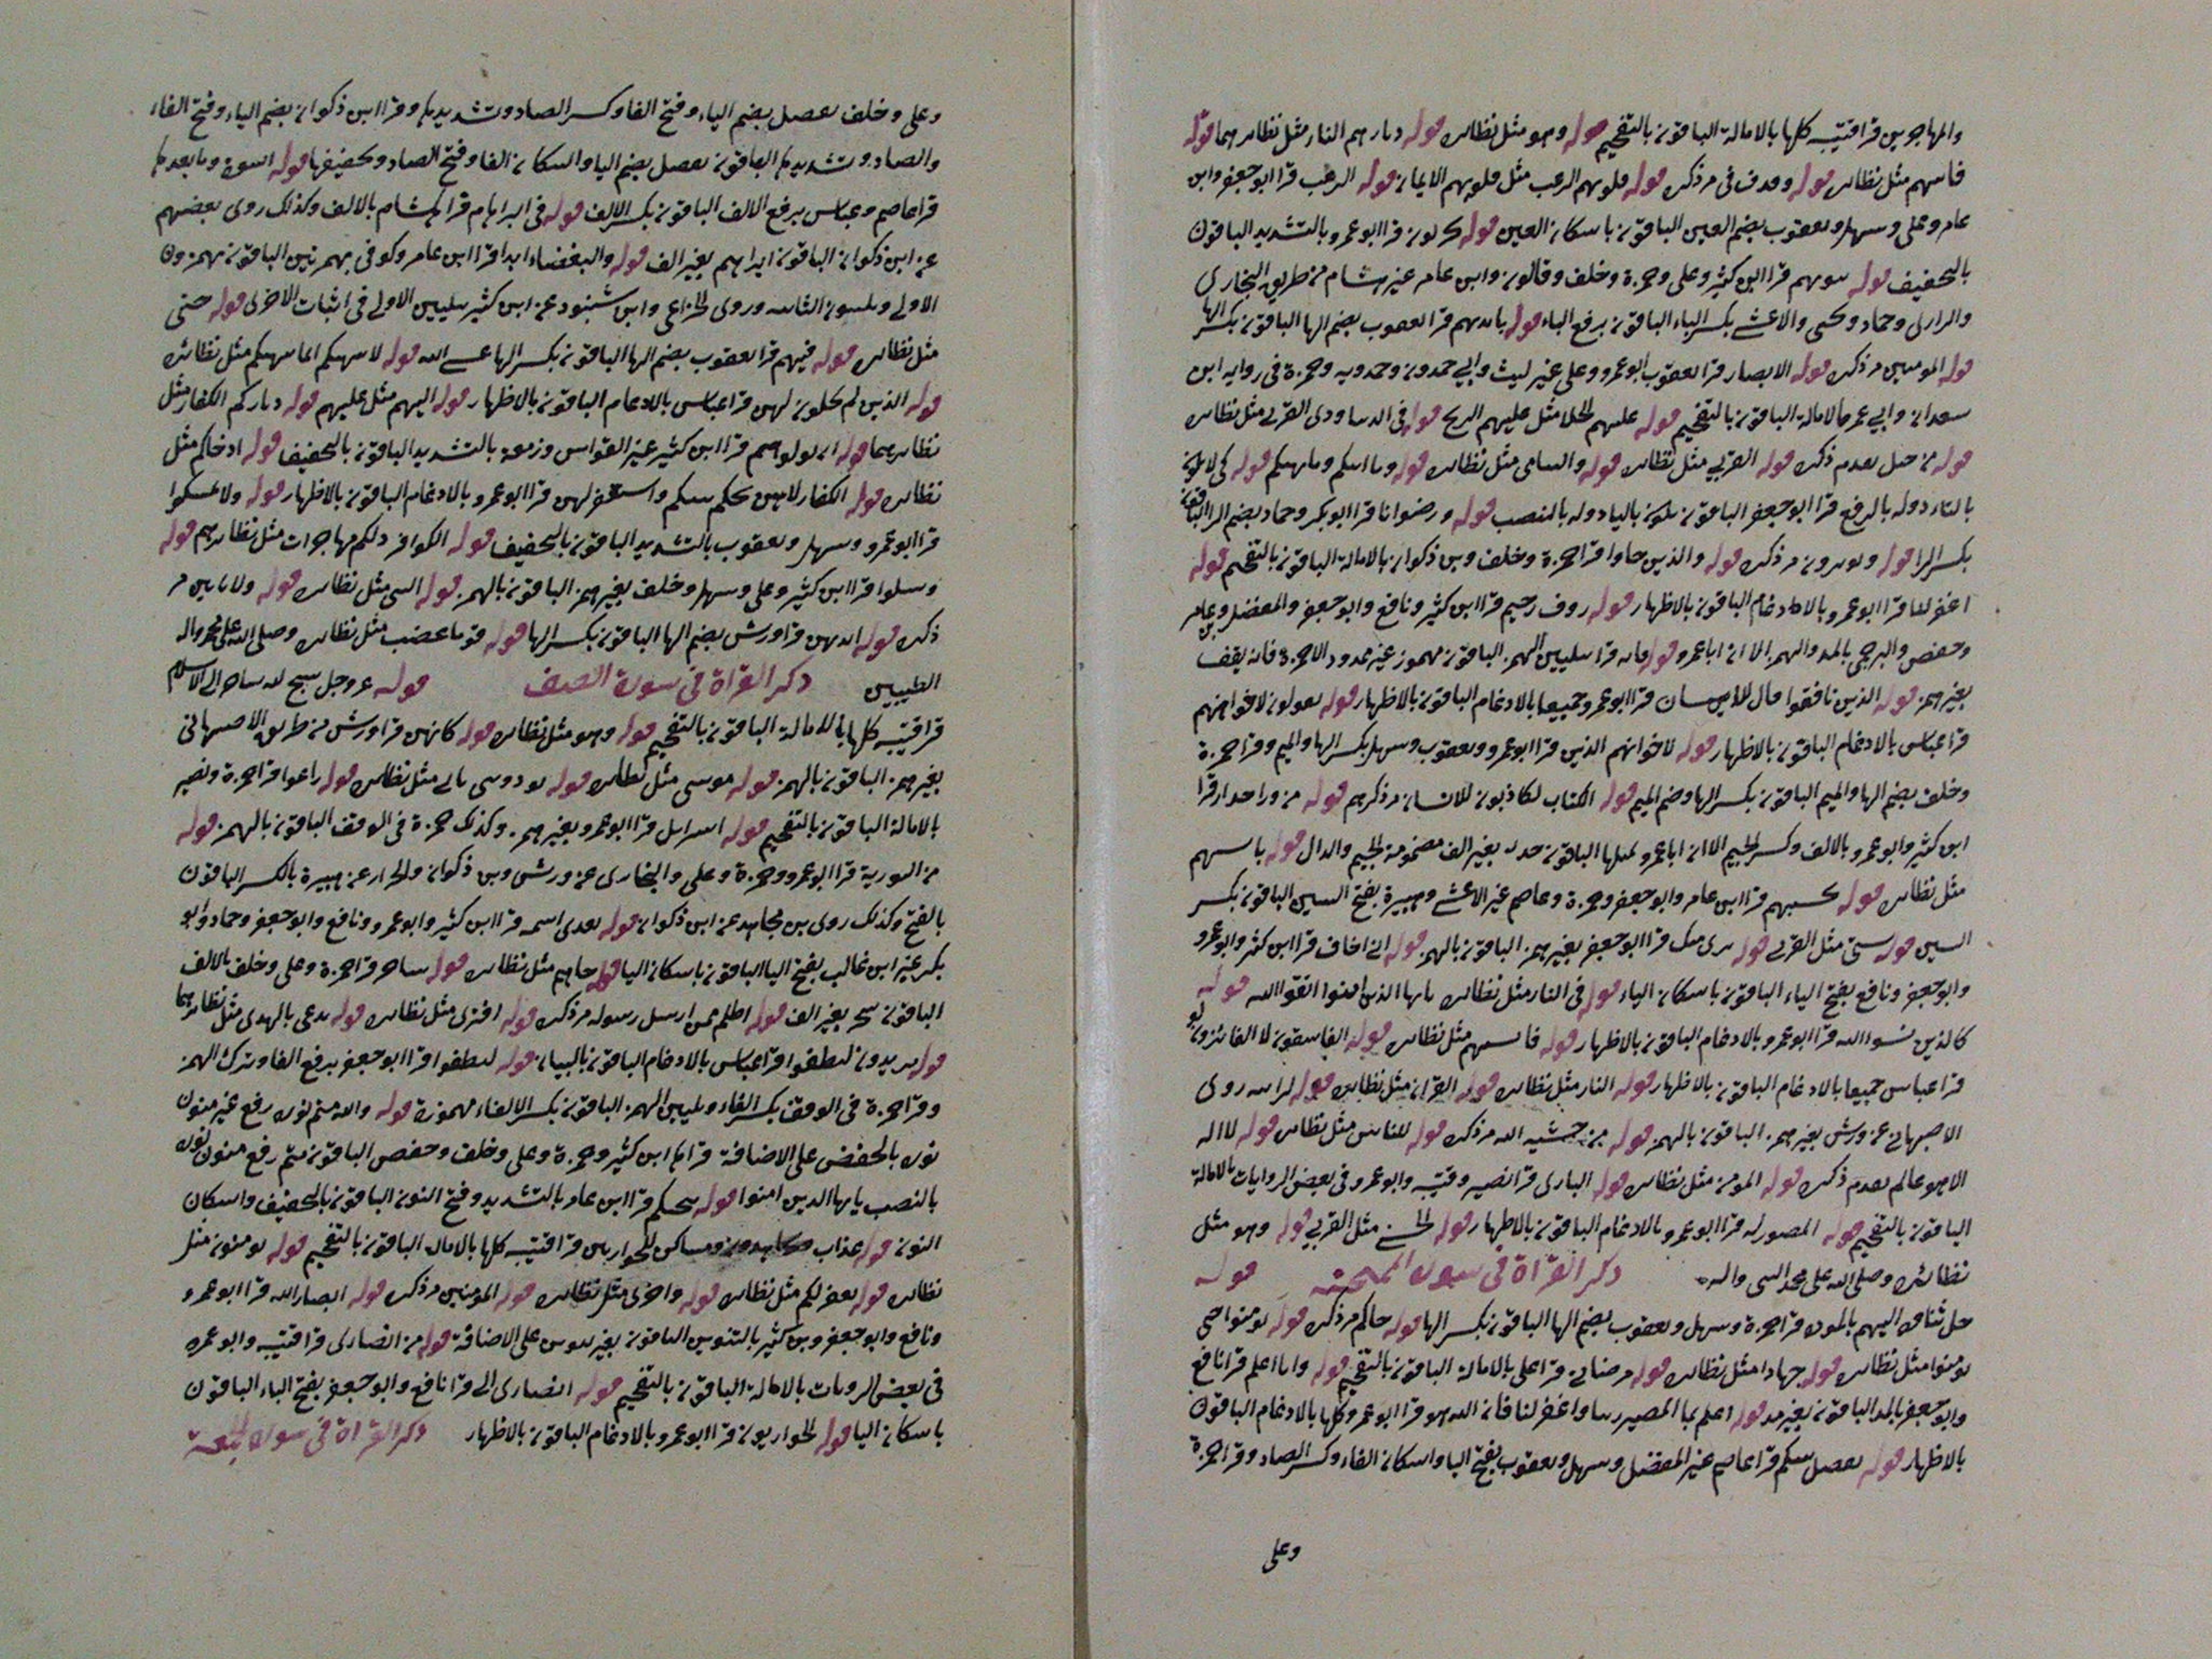 والمهاجرين قرا قتيبه كلها بالامالة الباقون بالتفخيم قوله وهو مثل نظائره قوله ديارهم النار مثل نظائرهما قوله
فاتيهم مثل نظائره قوله وقدف في مر ذكره قوله قلوبهم الرعب مثل قلوبهم الايمان قوله الرعب قرا ابو جعفر وابن
عامر وعلي وسهل ويعقوب بضم العين الباقون باسكان العين قوله يخربون قرا ابو عمرو بالتشديد الباقون
بالتخفيف قوله بيوتهم قرا ابن كثير وعلي وحمزة وخلف وقالون وابن عامر غير هشام من طريق البخاري
والرازي وحماد ويحيى والاعشى بكسر الباء الباقون برفع الباء قوله بايديهم قرا يعقوب بضم الها الباقون بكسر الها
قوله المومنين مر ذكره قوله الابصار قرا يعقوب ابو عمرو وعلي غير ليث وابي حمدون وحمدويه وحمزة في رواية ابن
سعدان وابي عمر بالامالة الباقون بالتفخيم قوله عليهم الجلا مثل عليهم الريح قوله في الدنيا وذي القربى مثل نظائره
قوله من خيل تقدم ذكره قوله القربى مثل نظائره قوله واليتامى مثل نظائره قوله وما اتيكم وما نهيكم قوله كي لا يكون
بالتاء دوله بالرفع قرا ابو جعفر الباقون يكون باليا دوله بالنصب قوله ورضوانا قرا ابو بكر وحماد بضم الرا الباقون
بكسر الرا قوله ويوثرون مر ذكره قوله والذين جاوا قرا حمزة وخلف وبن ذكوان بالامالة الباقون بالتفخيم قوله
اغفر لنا قرا ابو عمرو بالادغام الباقون بالاظهار قوله روف رحيم قرا ابن كثير ونافع وابو جعفر والمفضل وبن عامر
وحفص والبرجمي بالمد والهمز الا ان ابا عمرو قرا بتليين الهمز الباقون مهموز غير ممدود الا حمزة فانه يقف
بغير همز قوله الذين نافقوا قال للانسان قرا ابو عمرو جميعا بالادغام الباقون بالاظهار قوله يقولون لاخوانهم
قرا عباس بالادغام الباقون بالاظهار قوله لاخوانهم الذين قرا ابو عمرو ويعقوب وسهل بكسر الها والميم وقرا حمزة
وخلف بضم الها والميم الباقون بكسر الها وضم الميم قوله الكتاب لكاذبون للانسان مر ذكرهم قوله من ورا جدار قرا
ابن كثير وابو عمرو بالالف وكسر الجيم الا ان ابا عمرو يميلها الباقون جدر بغير الف مضمومة الجيم والدال قوله باسهم
مثل نظائره قوله تحسبهم قرا ابن عامر وابو جعفر وحمزة وعاصم غير الاعشى وهبيرة بفتح السين الباقون بكسر
السين قوله شتى مثل القربى قوله بري منك قرا ابو جعفر بغير همز الباقون بالهمز قوله اني اخاف قرا ابن كثير وابو عمرو
وابو جعفر ونافع بفتح الياء الباقون باسكان الياء قوله في النار مثل نظائره يا ايها الذين امنوا اتقوا الله قوله
كالذين نسوا الله قرا ابو عمرو بالادغام الباقون بالاظهار قوله فانسيهم مثل نظائره قوله الفاسقون لا الفائزون لو
قرا عباس جميعا بالادغام الباقون بالاظهار قوله النار مثل نظائره قوله القران مثل نظائره قوله لرايته روى
الاصبهاني عن ورش بغير همز الباقون بالهمز قوله من خشيه الله مر ذكره قوله للناس مثل نظائره قوله لا اله
الا هو عالم تقدم ذكره قوله المومن مثل نظائره قوله الباري قرا نصير وقتيبه وابو عمرو في بعض الروايات بالامالة
الباقون بالتفخيم قوله المصور له قرا ابو عمرو بالادغام الباقون بالاظهار قوله الحسنى مثل القربى قوله وهو مثل
نظائره وصلى الله على محمد النبي واله ذكر القراة في سورة الممتحنه قوله
جل ثناوه اليهم بالموده قرا حمزة وسهل ويعقوب بضم الها الباقون بكسر الها قوله جاكم مر ذكره قوله تومنوا حتى
تومنوا مثل نظائره قوله جهادا مثل نظائره قوله مرضاتي قرا علي بالامالة الباقون بالتفخيم قوله وانا اعلم قرا نافع
وابو جعفر بالمد الباقون بغير مد قوله اعلم بما المصير ربنا واغفر لنا فان الله هو قرا ابو عمرو كلها بالادغام الباقون
بالاظهار قوله يفصل بينكم قرا عاصم غير المفضل وسهل ويعقوب بفتح اليا واسكان الفاء وكسر الصاد وقرا حمزة
وعلي
وعلي وخلف يفصل بضم الياء وفتح الفا وكسر الصاد وتشديدها وقرا ابن ذكوان بضم الياء وفتح الفاء
والصاد وتشديدها الباقون يفصل بضم اليا واسكان الفا وفتح الصاد وتخفيفها قوله اسوة وما بعدها
قرا عاصم وعباس برفع الالف الباقون بكسر الالف قوله في ابراهام قرا هشام بالالف وكذلك روى بعضهم
عن ابن ذكوان الباقون ابراهيم بغير الف قوله والبغضاء ابدا قرا ابن عامر وكوفي بهمزتين الباقون يهمزون
الاولى ويلينون الثانيه وروى الخزاعي وابن شنبوذ عن ابن كثير بتليين الاولى في اثبات الاخرى قوله حتى
مثل نظائره قوله فيهم قرا يعقوب بضم الها الباقون بكسر الها عسى الله قوله لا ينهيكم انما ينهيكم مثل نظائره
قوله الذين لم يحلون لهن قرا عباس بالادغام الباقون بالاظهار قوله اليهم مثل عليهم قوله دياركم الكفار مثل
نظائرهما قوله ان تولوهم قرا ابن كثير غير القواس وزمعة بالتشديد الباقون بالتخفيف قوله اذ جاكم مثل
نظائره قوله الكفار لا هن يحكم بينكم واستغفر لهن قرا ابو عمرو بالادغام الباقون بالاظهار قوله ولا تمسكوا
قرا ابو عمرو وسهل ويعقوب بالتشديد الباقون بالتخفيف قوله الكوافر ذلكم مهاجرات مثل نظائرهم قوله
وسلوا قرا ابن كثير وعلي وسهل وخلف بغير همز الباقون بالهمز قوله النبي مثل نظائره قوله ولا ياتين مر
ذكره قوله ايديهن قرا ورش بضم الها الباقون بكسر الها قوله قوما غضب مثل نظائره وصلى الله على محمد واله
الطيبين ذكر القراة في سورة الصف قوله عز وجل سبح لله ساحر الى الاسلام
قرا قتيبه كلها بالامالة الباقون بالتفخيم قوله وهو مثل نظائره قوله كانهن قرا ورش من طريق الاصبهاني
بغير همز الباقون بالهمز قوله موسى مثل نظائره قوله تودوسى مالى مثل نظائره قوله زاغوا قرا حمزة ونصير
بالامالة الباقون بالتفخيم قوله اسرايل قرا ابو عمرو بغير همز وكذلك حمزة في الوقف الباقون بالهمز قوله
من التورية قرا ابو عمرو وحمزة وعلي والبخاري عن ورش وبن ذكوان والخراز عن هبيرة بالكسر الباقون
بالفتح وكذلك روى بن مجاهد عن ابن ذكوان قوله بعدي اسمه قرا ابن كثير وابو عمرو ونافع وابو جعفر وحماد وابو
بكر غير ابن غالب بفتح اليا الباقون باسكان اليا قوله جاهم مثل نظائره قوله ساحر قرا حمزة وعلي وخلف بالالف
الباقون سحر بغير الف قوله اظلم ممن ارسل رسوله مر ذكره قوله افترى مثل نظائره قوله يدعى بالهدى مثل نظائرهما
قوله يريدون ليطفوا قرا عباس بالادغام الباقون بالبيان قوله ليطفوا قرا ابو جعفر برفع الفا وترك الهمز
وقرا حمزة في الوقف بكسر الفاء وبليين الهمز الباقون بكسر الالفاء مهموزة قوله والله متم نوره رفع غير منون
نوره بالخفض على الاضافة قراها ابن كثير وحمزة وعلي وخلف وحفص الباقون متم رفع منون نوره
بالنصب يا ايها الذين امنوا قوله تنجيكم قرا ابن عامر بالتشديد وفتح النون الباقون بالتخفيف واسكان
النون قوله عذاب ومساكن للحواريين قرا قتيبه كلها بالاماله الباقون بالتفخيم قوله تومنون مثل
نظائره قوله يغفر لكم مثل نظائره قوله واخرى مثل نظائره قوله المومنين مر ذكره قوله انصار الله قرا ابو عمرو
ونافع وابو جعفر وبن كثير بالتنوين الباقون بغير تنوين على الاضافة قوله من انصاري قرا قتيبه وابو عمرو
في بعض الروايات بالامالة الباقون بالتفخيم قوله انصاري الى قرا نافع وابو جعفر بفتح الياء الباقون
باسكان اليا قوله الحواريون قرا ابو عمرو بالادغام الباقون بالاظهار ذكر القراة في سورة الجمعة